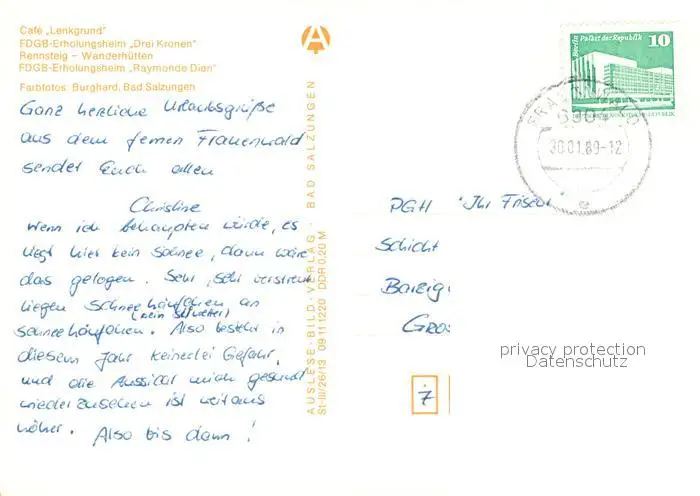 Café „Lenkgrund"
FDGB-Erholungsheim „Drei Kronen"
Rennsteig – Wanderhütten
FDGB-Erholungsheim „Raymonde Dien"
Farbfotos: Burghard, Bad Salzungen
Ganz herzliche Urlaubsgrüße
aus dem fernen Frauenwald
sendet Euch allen
Christine
Wenn ich behaupten würde, es
liegt hier kein Schnee, dann wäre
das gelogen. Sehr, sehr verstreut
liegen Schneehäufchen an
Schneehäufchen. (kein Skiwetter) Also besteht in
diesem Jahr keinerlei Gefahr,
und die Aussicht mich gesund
wiederzusehen ist weitaus
höher. Also bis dann!
AUSLESE-BILD-VERLAG · BAD SALZUNGEN
St-III/26/13 09 11 1220 DDR 0,20 M
A
Berlin Palast der Republik
10
30.01.89-12
PGH "Ihr Friseur
Schicht
Gros
7
privacy protection
Datenschutz